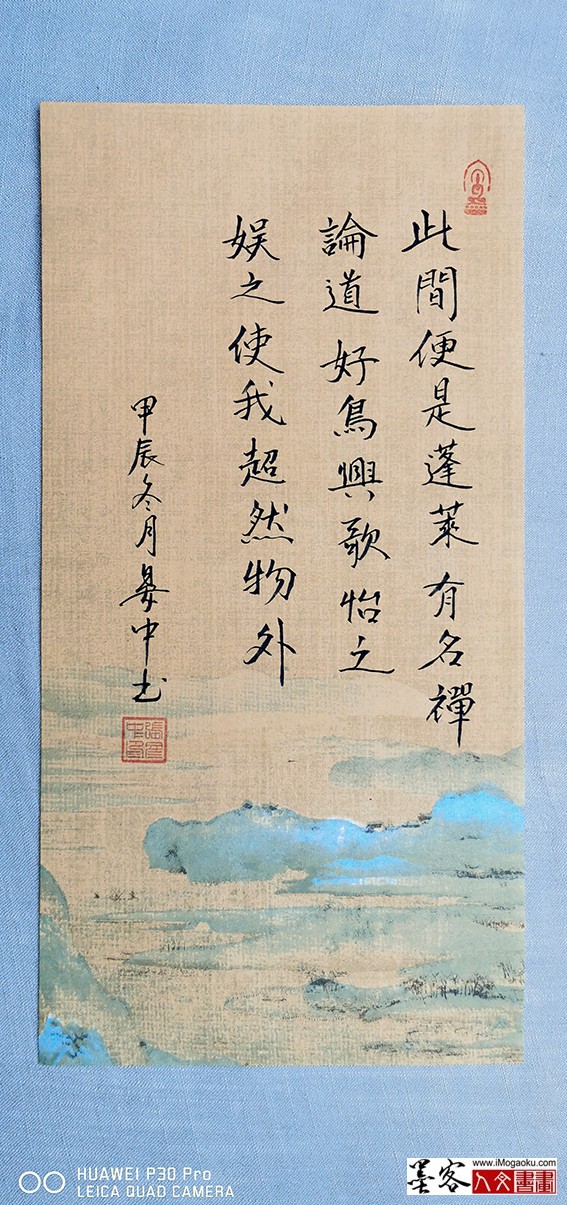 此間便是蓬萊有名禪
論道好鳥興歌怡之
娱之使我超然物外
甲辰冬月晏中书
HUAWEI P30 Pro
LEICA QUAD CAMERA
墨客
www.iMogaoku.com
人文書畫